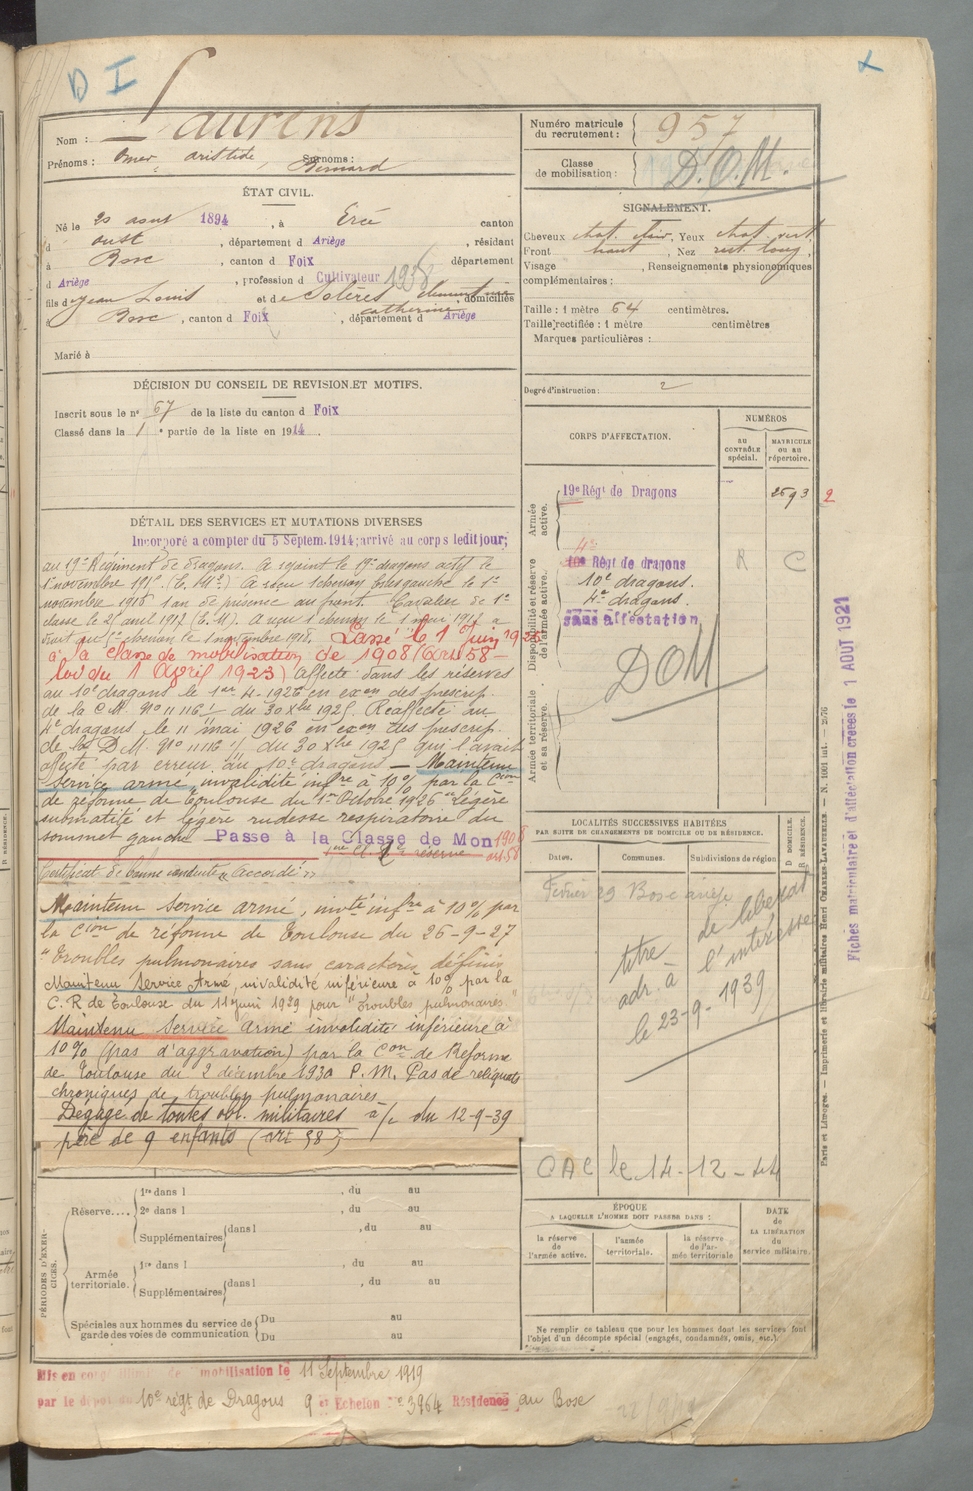 D I
Nom : Laurens
Prénoms : Omer Aristide Surnoms : Bernard
ÉTAT CIVIL.
Né le 20 aout 1894, à Ercé canton
d oust, département d Ariège, résidant
à Bosc, canton d Foix département
d Ariège, profession d Cultivateur 1938
fils de Jean Louis et de Solères clementine catherine domiciliés
Bosc, canton d Foix, département d Ariège
Marié à
DÉCISION DU CONSEIL DE REVISION ET MOTIFS.
Inscrit sous le n° 57 de la liste du canton d Foix
Classé dans la 1e partie de la liste en 1914.
DÉTAIL DES SERVICES ET MUTATIONS DIVERSES
Incorporé a compter du 5 Septem. 1914; arrivé au corps ledit jour;
au 19e Régiment de dragons. A rejoint le 19e dragons actif le
1er novembre 1915 (E. M.) A reçu 1 chevron brisgauche le 1er
novembre 1916 1 an de présence au front. Cavalier de 1e
classe le 21 avril 1917 (E. M). A reçu 1 chevron le 1 mai 1917 a
droit au chevron le 1 novembre 1918. Passé le 1 Juin 1925
à la classe de mobilisation de 1908 (art 58 -
loi du 1 April 1923) affecté dans les réserves
au 10e dragons le 1er 4-1926 en exon des prescrip.
de la C.M. N° 11116 1/ du 30 Xbre 1925. Réaffecté au
4e dragons le 11 mai 1926 en exon des prescrip.
de la D.M. N° 11116 1/ du 30 Xbre 1925 qui l'avait
affecté par erreur au 10e dragons — Maintenu
Service armé, invalidité infre à 10% par la Cion
de réforme de Toulouse du 1er Octobre 1926 "Légère
submatité et légère rudesse respiratoire du
sommet gauche Passe à la Classe de Mon 1908
art. 58
Certificat de bonne conduite "Accordé"
Maintenu Service armé, invté infre à 10% par
la Cion de réforme de Toulouse du 26-9-27
"Troubles pulmonaires sans caractères définis
Maintenu Service Armé, invalidité inférieure à 10% par la
C. R de Toulouse du 11 juin 1929 pour "Troubles pulmonaires"
Maintenu Service armé invalidité inférieure à
10% (pas d'aggravation) par la Con de Réforme
de Toulouse du 2 décembre 1930 P. M. Pas de reliquats
chroniques de troubles pulmonaires
Dégagé de toutes obl. militaires à/c du 12-9-39
père de 9 enfants (art 58)
PÉRIODES D'EXERCICES.
Réserve.... 1re dans l , du au
2e dans l , du au
Supplémentaires dans l , du au
Armée territoriale. 1re dans l , du au
Supplémentaires dans l , du au
Spéciales aux hommes du service de garde des voies de communication Du au
Du au
Mis en congé illimité de mobilisation le 11 Septembre 1919
par le dépot du 10e régt de Dragons 9e Echelon N° 3964 Résidence au Bosc
Numéro matricule du recrutement : 957
Classe de mobilisation : D. O. M.
SIGNALEMENT.
Cheveux chat. clair, Yeux chat. vert
Front haut, Nez rect. long,
Visage , Renseignements physionomiques
complémentaires :
Taille : 1 mètre 64 centimètres.
Taille rectifiée : 1 mètre centimètres
Marques particulières :
Degré d'instruction : 2
CORPS D'AFFECTATION.
NUMÉROS
AU CONTRÔLE spécial.
MATRICULE OU AU répertoire.
Armée active.
19e Régt de Dragons 2593 2
Disponibilité et réserve de l'armée active.
4e
10e Régt de dragons R C
10e dragons.
4e dragons.
sans affectation
DOM
Armée territoriale et sa réserve.
LOCALITÉS SUCCESSIVES HABITÉES
PAR SUITE DE CHANGEMENTS DE DOMICILE OU DE RÉSIDENCE.
Dates. Communes. Subdivisions de région
D DOMICILE.
R RÉSIDENCE.
Février 29 Bosc ariège
titre de libérat
adr. à l'intéressé
le 23-9-1939
OAC le 14-12-44
ÉPOQUE
A LAQUELLE L'HOMME DOIT PASSER DANS :
la réserve de l'armée active.
l'armée territoriale.
la réserve de l'armée territoriale
DATE DE LA LIBÉRATION du service militaire.
Ne remplir ce tableau que pour les hommes dont les services font
l'objet d'un décompte spécial (engagés, condamnés, omis, etc.).
Paris et Limoges. — Imprimerie et librairie militaires Henri CHARLES-LAVAUZELLE. — N. 1001 int. —
Fiches matriculaire et d'affectation créées le 1 AOUT 1921